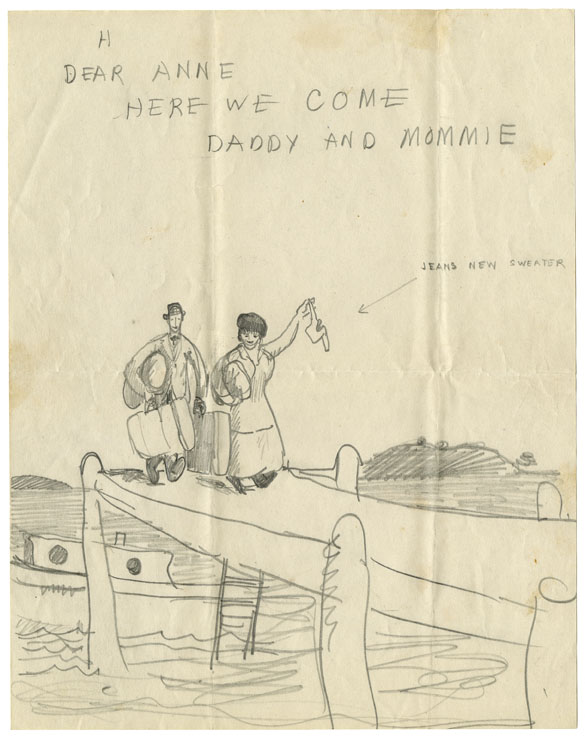 H
DEAR ANNE
HERE WE COME
DADDY AND MOMMIE
JEANS NEW SWEATER